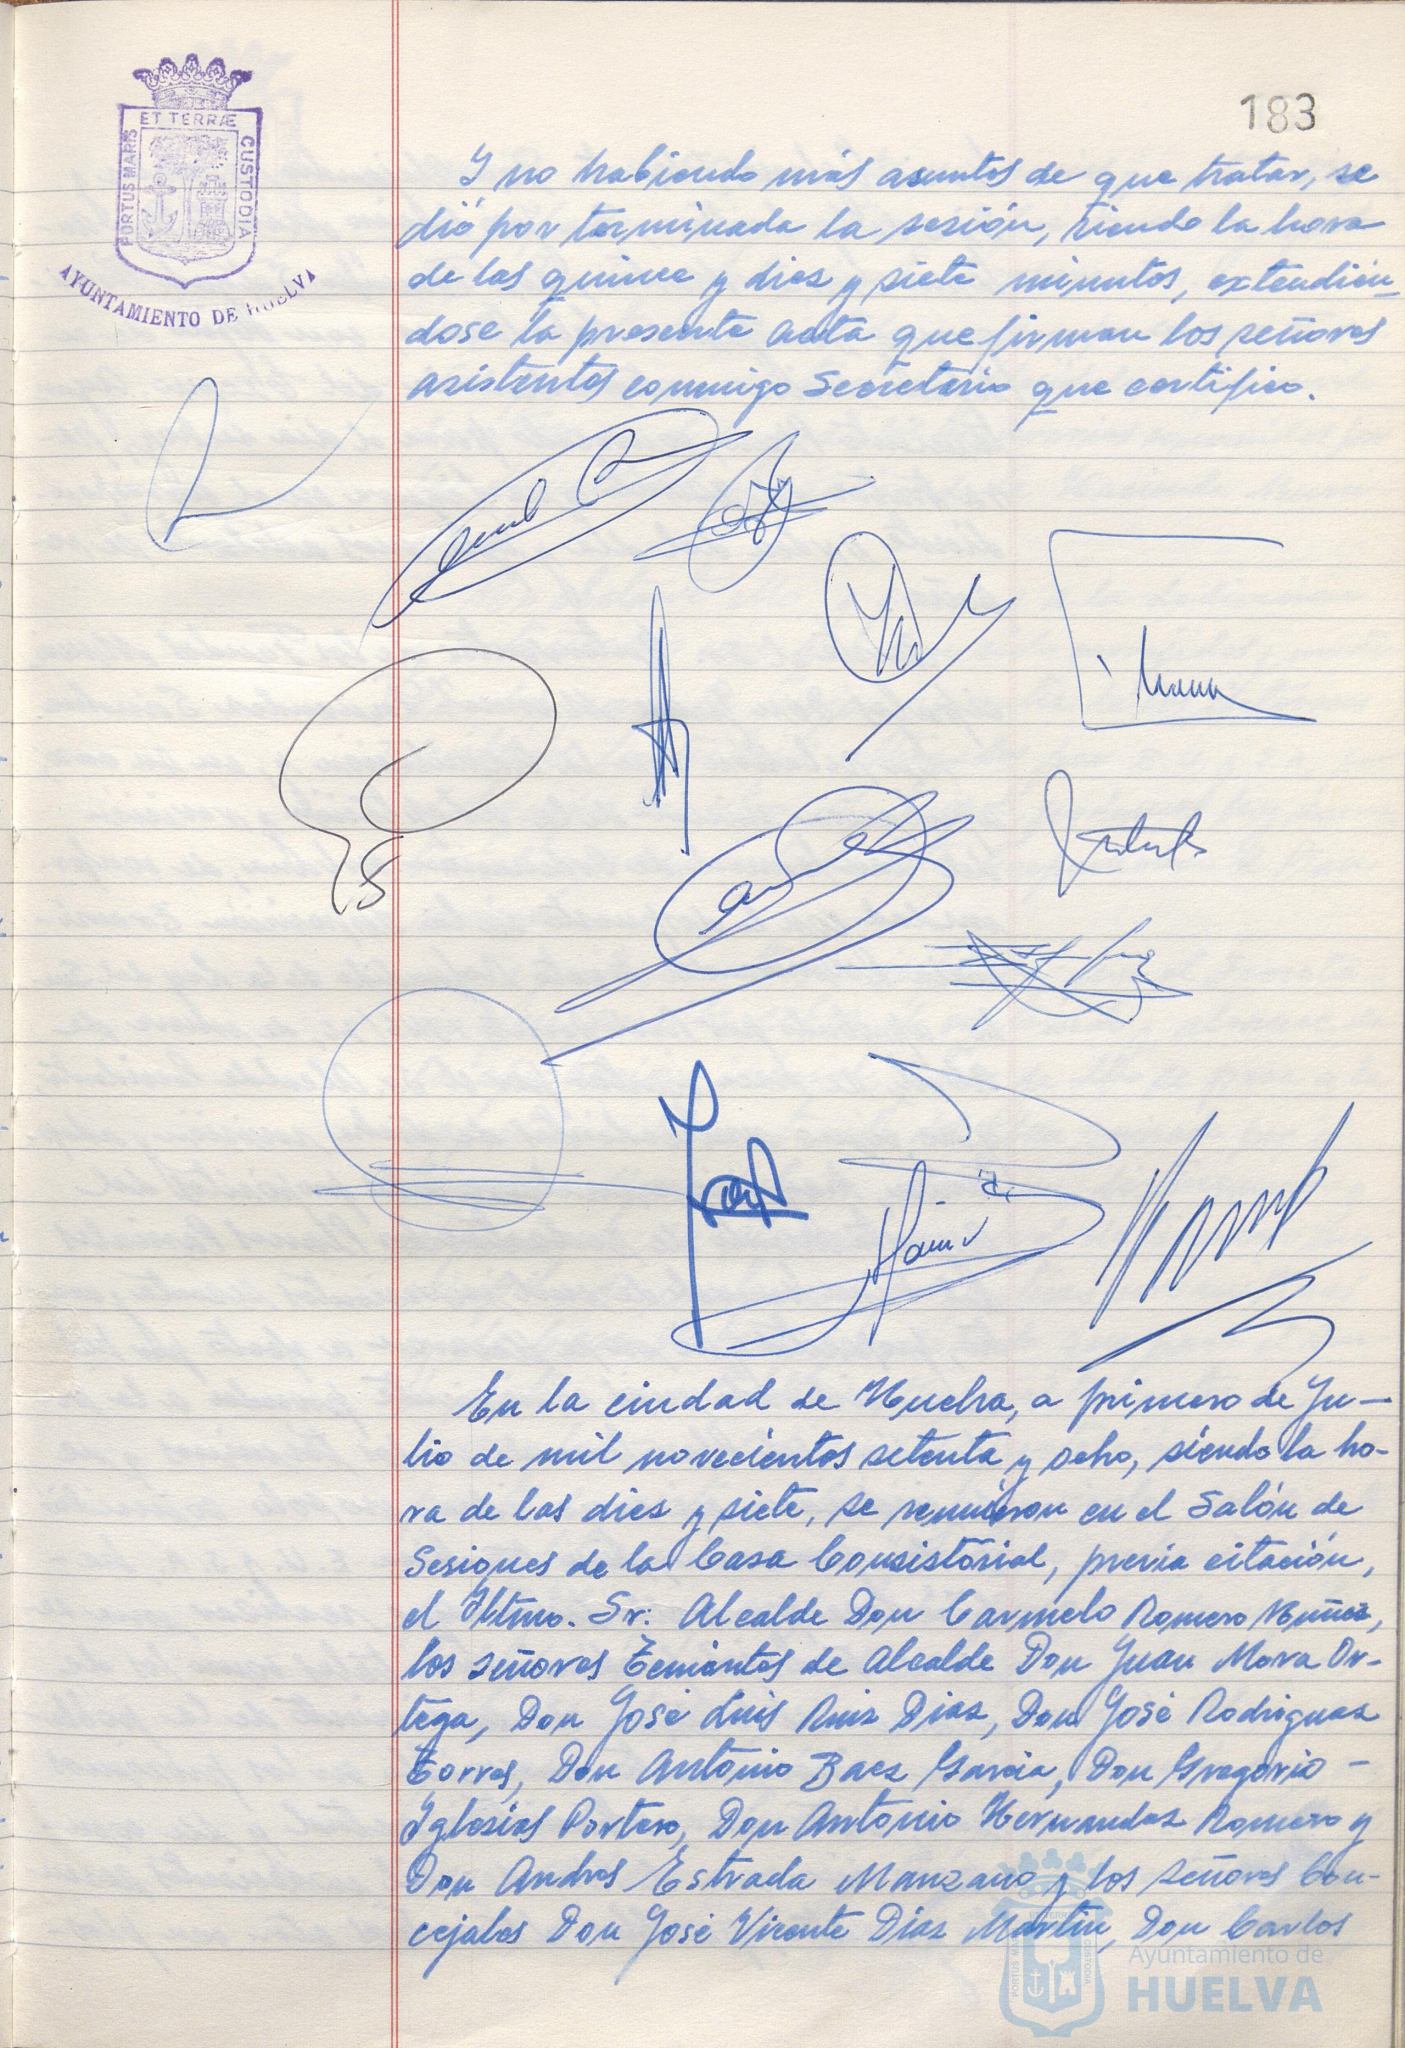 PORTUS MARIS
ET TERRÆ
CUSTODIA
AYUNTAMIENTO DE HUELVA
183
Y no habiendo más asuntos de que tratar, se
dió por terminada la sesión, siendo la hora
de las quince y diez y siete minutos, extendién-
dose la presente acta que firman los señores
asistentes conmigo Secretario que certifico.
En la ciudad de Huelva, a primero de Ju-
lio de mil novecientos setenta y ocho, siendo la ho-
ra de las diez y siete, se reunieron en el Salón de
Sesiones de la Casa Consistorial, previa citación,
el Iltmo. Sr. Alcalde Don Carmelo Romero Núñez,
los señores Tenientes de Alcalde Don Juan Mora Or-
tega, Don José Luis Ruiz Díaz, Don José Rodriguez
Torres, Don Antonio Baez Garcia, Don Gregorio -
Iglesias Portero, Don Antonio Hernandez Romero y
Don Andres Estrada Manzano y los señores Con-
cejales Don José Vicente Diaz Martin, Don Carlos
Ayuntamiento de
HUELVA